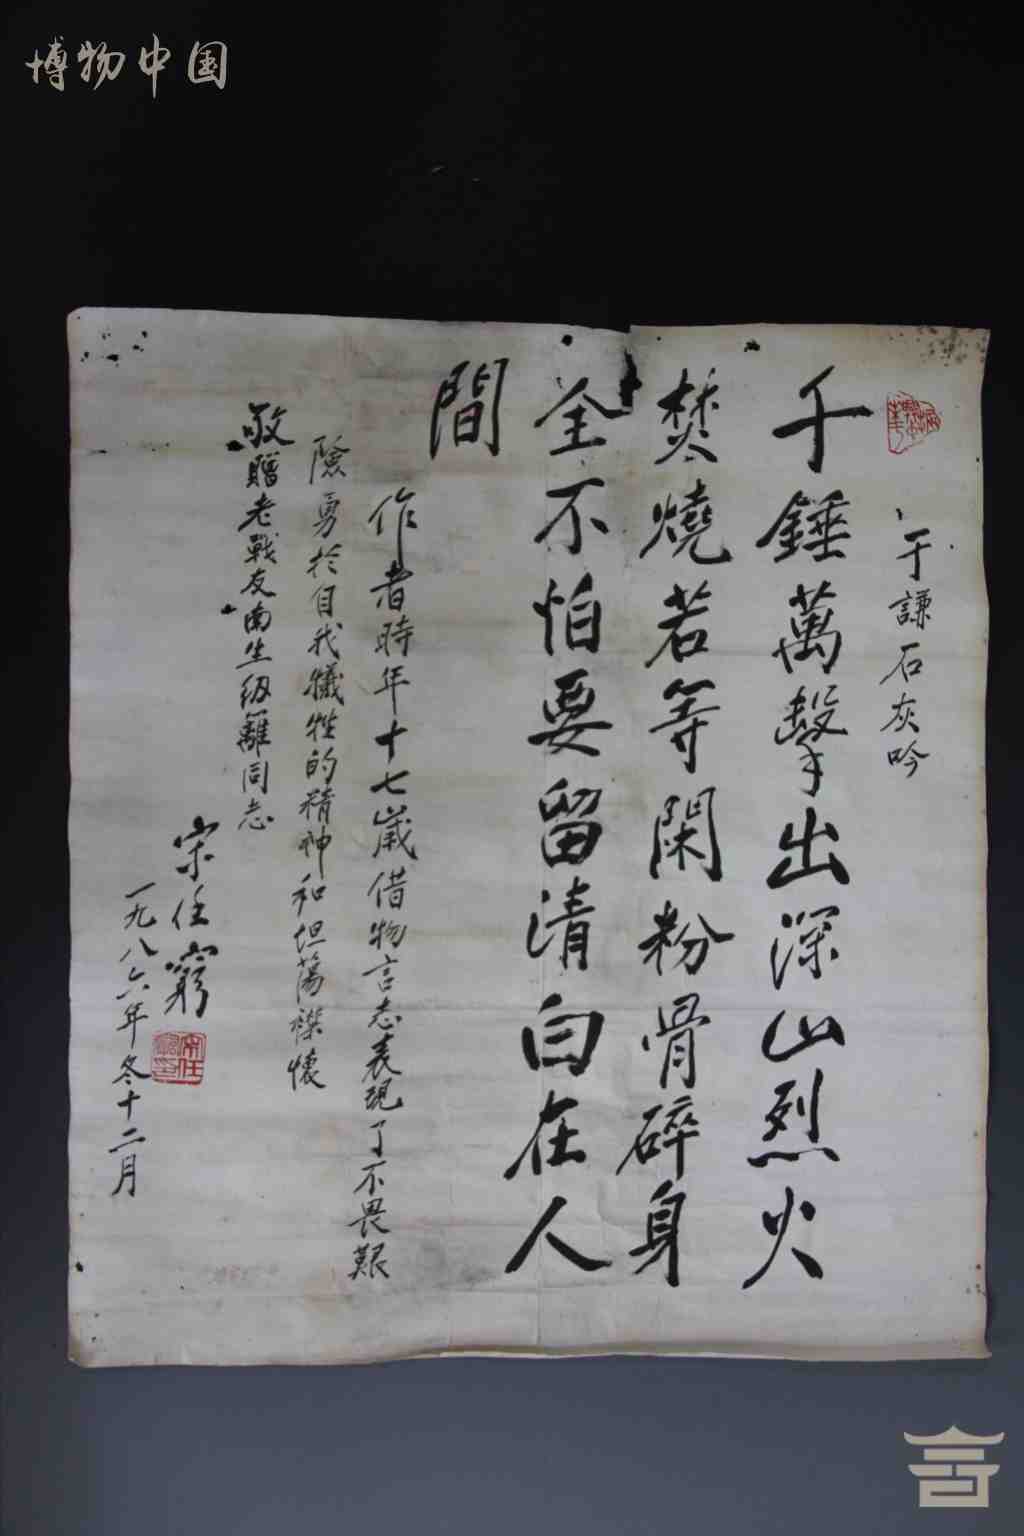 博物中国
于謙石灰吟
千錘萬擊出深山烈火
焚燒若等閑粉骨碎身
全不怕要留清白在人
間
作者時年十七歲借物言志表現了不畏艱
險勇於自我犧牲的精神和坦蕩襟懷
敬贈老戰友南生级籬同志
宋任窮
一九八六年冬十二月